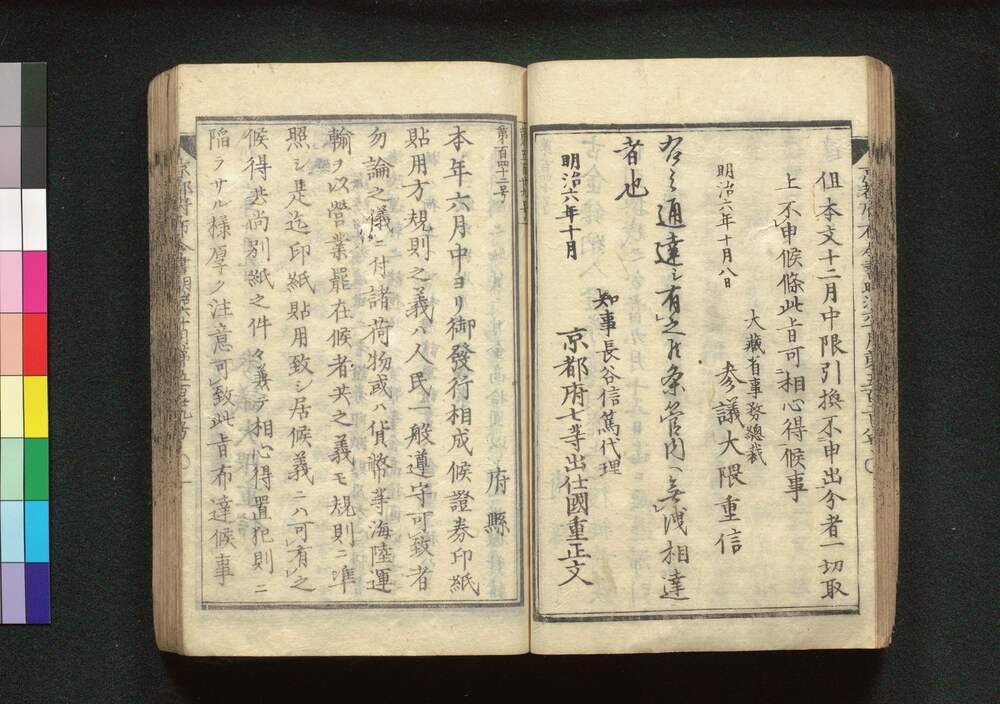 但本文十二月中限引換不申出分者一切取
上不申候條此旨可相心得候事
明治六年十月八日
大藏省事務總裁
参議大隈重信
右之通達シ有之候条管内ヘ無洩相達
者也
明治六年十月
知事長谷信篤代理
京都府七等出仕國重正文
第百四十二号
府縣
本年六月中ヨリ御發行相成候證券印紙
貼用方規則之義ハ人民一般遵守可致者
勿論之儀ニ付諸荷物或ハ貨幣等海陸運
輸ヲ以營業罷在候者共之義モ規則ニ準
照シ是迄印紙貼用致シ居候義ニハ可有之
候得共尚別紙之件々義テ相心得置犯則ニ
陷ラサル様厚ク注意可致此旨布達候事